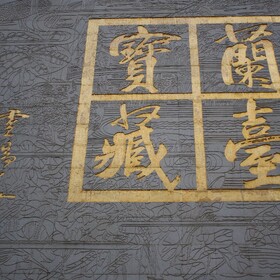 蘭臺
寶藏